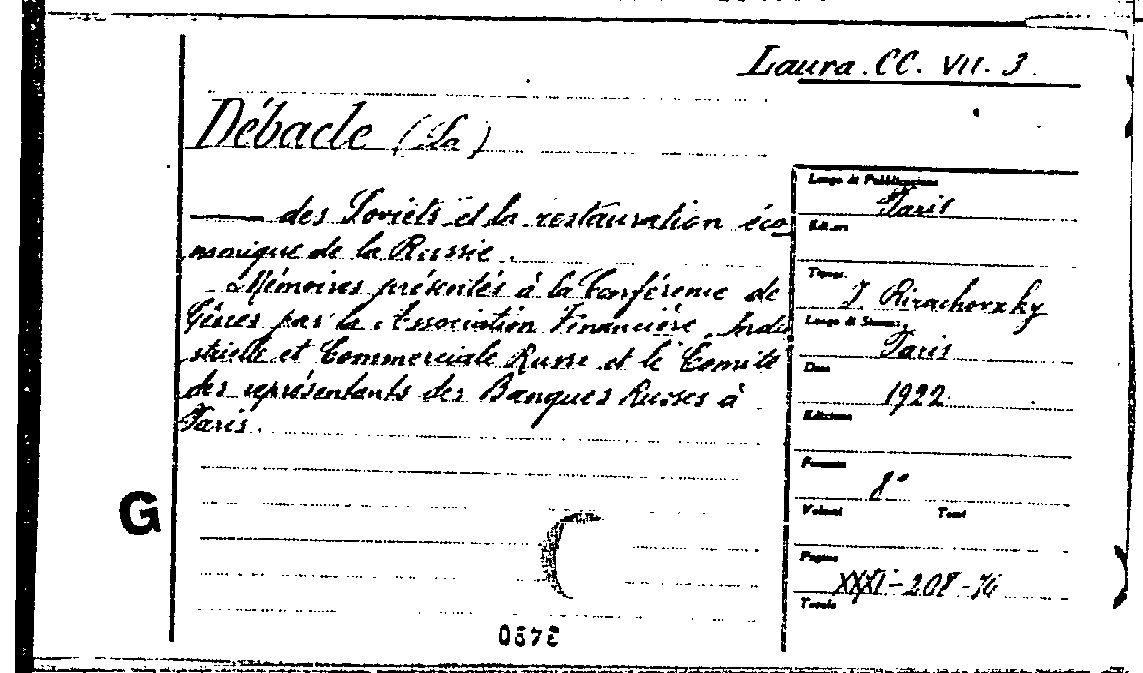 Laura. CC. VII. 3.
Débacle (La)
—— des Soviéts et la restauration éco
nomique de la Russie.
Mémoires présentés à la Conférence de
Gênes par la Association Financière, Indu
strielle et Commerciale Russe et le Comité
des représentants des Banques Russes à
Paris.
Luogo di Pubblicazione
Paris
Editore
Tipogr.
J. Rirachovzky
Luogo di Stampa
Paris
Data
1922
Edizione
Formato
8°
Volumi Tomi
Pagine
XXXI-208-76
Tavole
G